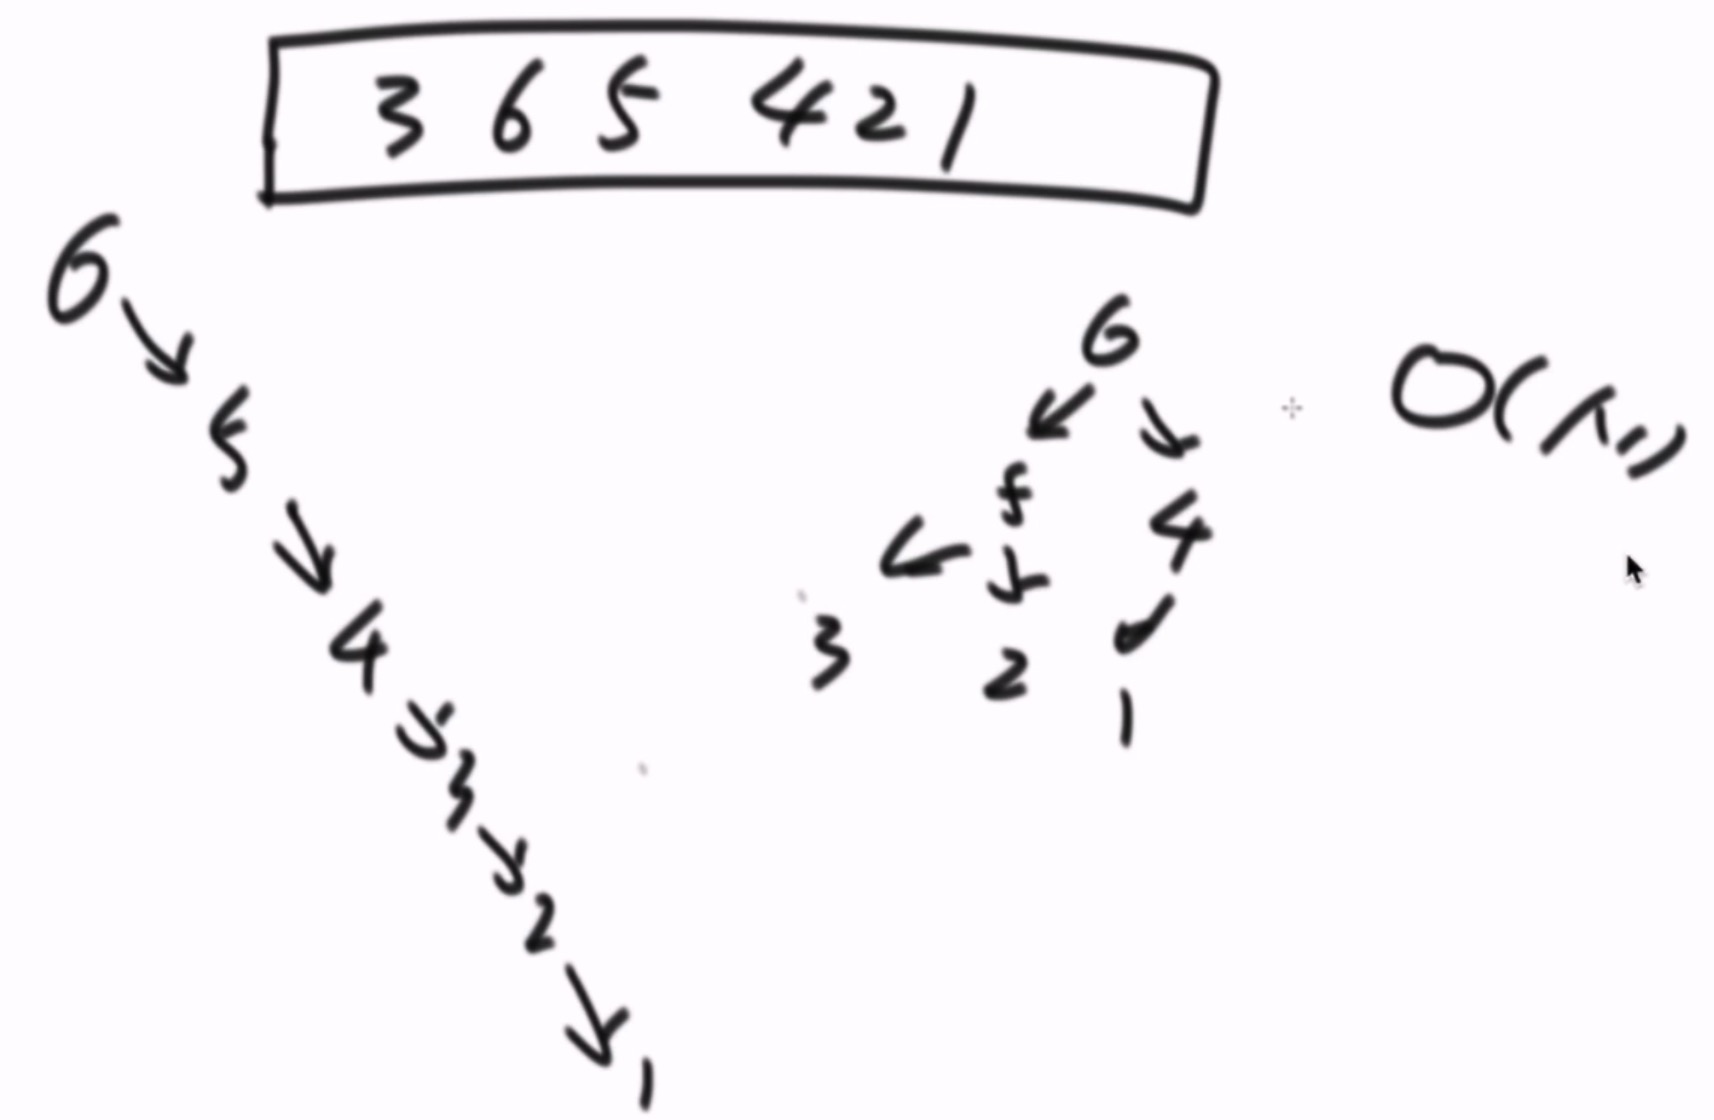 3 6 5 4 2 1
6
5
4
3
2
1
6
5 4
3 2 1